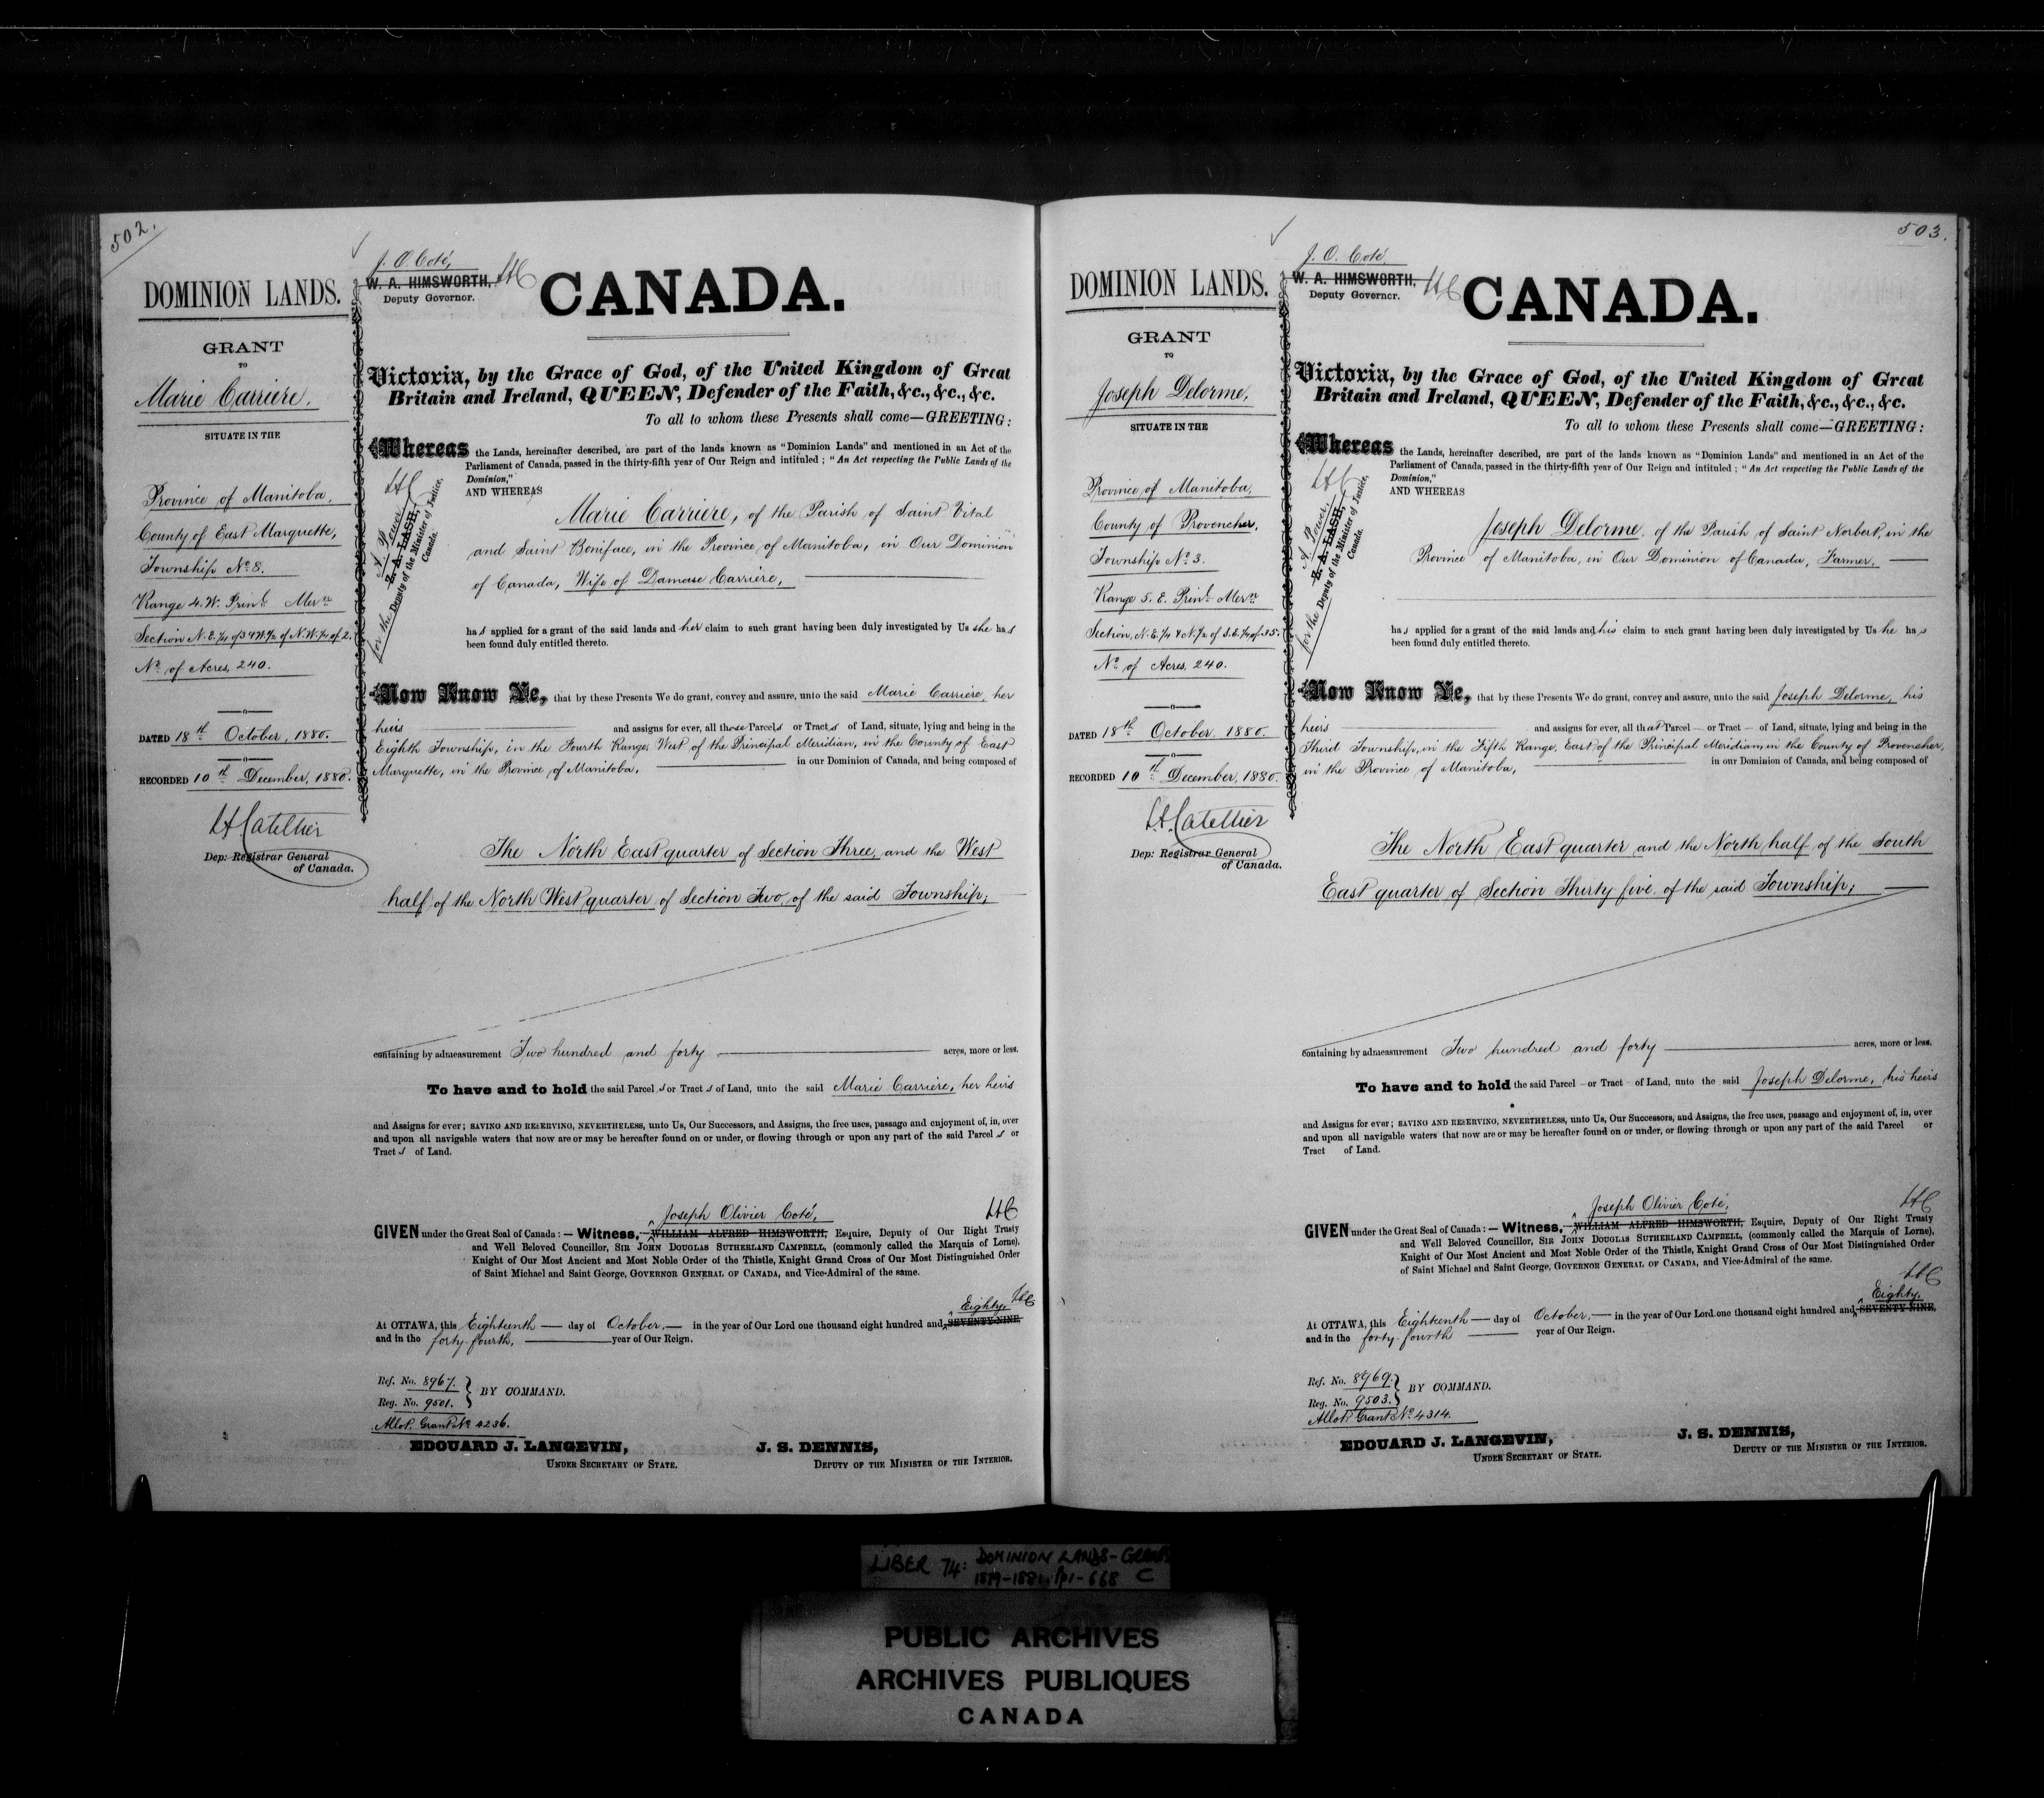 502.
DOMINION LANDS.
GRANT
TO
Marie Carriere,
SITUATE IN THE
Province of Manitoba,
County of East Marquette,
Township No 8.
Range 4. W. Prinl Mern
Section N.E.¼ of 3 & W.½ of N.W.¼ of 2.
No of Acres, 240.
DATED 18th October, 1880.
RECORDED 10th December, 1880.
LHCatellier
Dep: Registrar General
of Canada.
J. O. Coté,
W. A. HIMSWORTH, LHC
Deputy Governor.
CANADA.
Victoria, by the Grace of God, of the United Kingdom of Great
Britain and Ireland, QUEEN, Defender of the Faith, &c., &c., &c.
To all to whom these Presents shall come—GREETING:
Whereas the Lands, hereinafter described, are part of the lands known as "Dominion Lands" and mentioned in an Act of the
Parliament of Canada, passed in the thirty-fifth year of Our Reign and intituled; "An Act respecting the Public Lands of the
Dominion,"
AND WHEREAS
LHC
A Power
Z. A. LASH,
for the Deputy of the Minister of Justice,
Canada.
Marie Carriere, of the Parish of Saint Vital
and Saint Boniface, in the Province of Manitoba, in Our Dominion
of Canada, Wife of Damase Carriere,
has applied for a grant of the said lands and her claim to such grant having been duly investigated by Us she has
been found duly entitled thereto.
Now Know Ye, that by these Presents We do grant, convey and assure, unto the said Marie Carriere, her
heirs and assigns for ever, all those Parcels or Tracts of Land, situate, lying and being in the
Eighth Township, in the Fourth Range, West of the Principal Meridian, in the County of East
Marquette, in the Province of Manitoba, in our Dominion of Canada, and being composed of
The North East quarter of Section Three, and the West
half of the North West quarter of Section Two, of the said Township;
containing by admeasurement Two hundred and forty acres, more or less.
To have and to hold the said Parcel s or Tract s of Land, unto the said Marie Carriere, her heirs
and Assigns for ever; SAVING AND RESERVING, NEVERTHELESS, unto Us, Our Successors, and Assigns, the free uses, passage and enjoyment of, in, over
and upon all navigable waters that now are or may be hereafter found on or under, or flowing through or upon any part of the said Parcel s or
Tract s of Land.
Joseph Olivier Coté, LHC
GIVEN under the Great Seal of Canada:—Witness, WILLIAM ALFRED HIMSWORTH, Esquire, Deputy of Our Right Trusty
and Well Beloved Councillor, SIR JOHN DOUGLAS SUTHERLAND CAMPBELL, (commonly called the Marquis of Lorne),
Knight of Our Most Ancient and Most Noble Order of the Thistle, Knight Grand Cross of Our Most Distinguished Order
of Saint Michael and Saint George, GOVERNOR GENERAL OF CANADA, and Vice-Admiral of the same.
Eighty, LHC
At OTTAWA, this Eighteenth day of October, in the year of Our Lord one thousand eight hundred and SEVENTY-NINE,
and in the forty fourth, year of Our Reign.
Ref. No. 8967.
Reg. No. 9501. } BY COMMAND.
Allot. Grant No 4236.
EDOUARD J. LANGEVIN, J. S. DENNIS,
UNDER SECRETARY OF STATE. DEPUTY OF THE MINISTER OF THE INTERIOR.
503.
DOMINION LANDS.
GRANT
TO
Joseph Delorme,
SITUATE IN THE
Province of Manitoba,
County of Provencher,
Township No 3.
Range 5. E. Prinl Mern
Section, N.E.¼ & N.½ of S.E.¼ of 35.
No of Acres, 240.
DATED 18th October, 1880.
RECORDED 10th December, 1880.
LHCatellier
Dep: Registrar General
of Canada.
J. O. Coté,
W. A. HIMSWORTH, LHC
Deputy Governor.
CANADA.
Victoria, by the Grace of God, of the United Kingdom of Great
Britain and Ireland, QUEEN, Defender of the Faith, &c., &c., &c.
To all to whom these Presents shall come—GREETING:
Whereas the Lands, hereinafter described, are part of the lands known as "Dominion Lands" and mentioned in an Act of the
Parliament of Canada, passed in the thirty-fifth year of Our Reign and intituled; "An Act respecting the Public Lands of the
Dominion,"
AND WHEREAS
LHC
A Power,
Z. A. LASH,
for the Deputy of the Minister of Justice,
Canada.
Joseph Delorme, of the Parish of Saint Norbert, in the
Province of Manitoba, in Our Dominion of Canada, Farmer,
has applied for a grant of the said lands and his claim to such grant having been duly investigated by Us he has
been found duly entitled thereto.
Now Know Ye, that by these Presents We do grant, convey and assure, unto the said Joseph Delorme, his
heirs and assigns for ever, all that Parcel or Tract of Land, situate, lying and being in the
Third Township, in the Fifth Range, East of the Principal Meridian, in the County of Provencher,
in the Province of Manitoba, in our Dominion of Canada, and being composed of
The North East quarter and the North half of the South
East quarter of Section Thirty five, of the said Township;
containing by admeasurement Two hundred and forty acres, more or less.
To have and to hold the said Parcel or Tract of Land, unto the said Joseph Delorme, his heirs
and Assigns for ever; SAVING AND RESERVING, NEVERTHELESS, unto Us, Our Successors, and Assigns, the free uses, passage and enjoyment of, in, over
and upon all navigable waters that now are or may be hereafter found on or under, or flowing through or upon any part of the said Parcel or
Tract of Land.
Joseph Olivier Coté, LHC
GIVEN under the Great Seal of Canada:—Witness, WILLIAM ALFRED HIMSWORTH, Esquire, Deputy of Our Right Trusty
and Well Beloved Councillor, SIR JOHN DOUGLAS SUTHERLAND CAMPBELL, (commonly called the Marquis of Lorne),
Knight of Our Most Ancient and Most Noble Order of the Thistle, Knight Grand Cross of Our Most Distinguished Order
of Saint Michael and Saint George, GOVERNOR GENERAL OF CANADA, and Vice-Admiral of the same.
LHC
Eighty,
At OTTAWA, this Eighteenth day of October, in the year of Our Lord one thousand eight hundred and SEVENTY-NINE,
and in the forty fourth year of Our Reign.
Ref. No. 8969.
Reg. No. 9503. } BY COMMAND.
Allot. Grant No 4314.
EDOUARD J. LANGEVIN, J. S. DENNIS,
UNDER SECRETARY OF STATE. DEPUTY OF THE MINISTER OF THE INTERIOR.
LIBER 74: DOMINION LANDS - GRANTS
1879-1881, pp1-668 C
PUBLIC ARCHIVES
ARCHIVES PUBLIQUES
CANADA